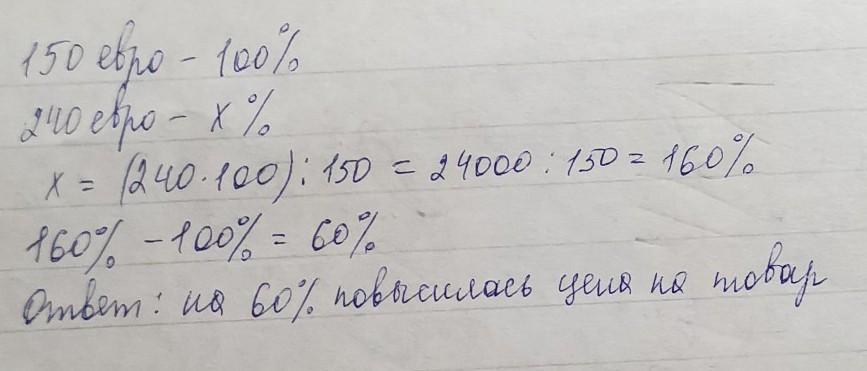 150 евро - 100%
240 евро - x%
x = (240·100) : 150 = 24000 : 150 = 160%
160% - 100% = 60%
Ответ: на 60% повысилась цена на товар